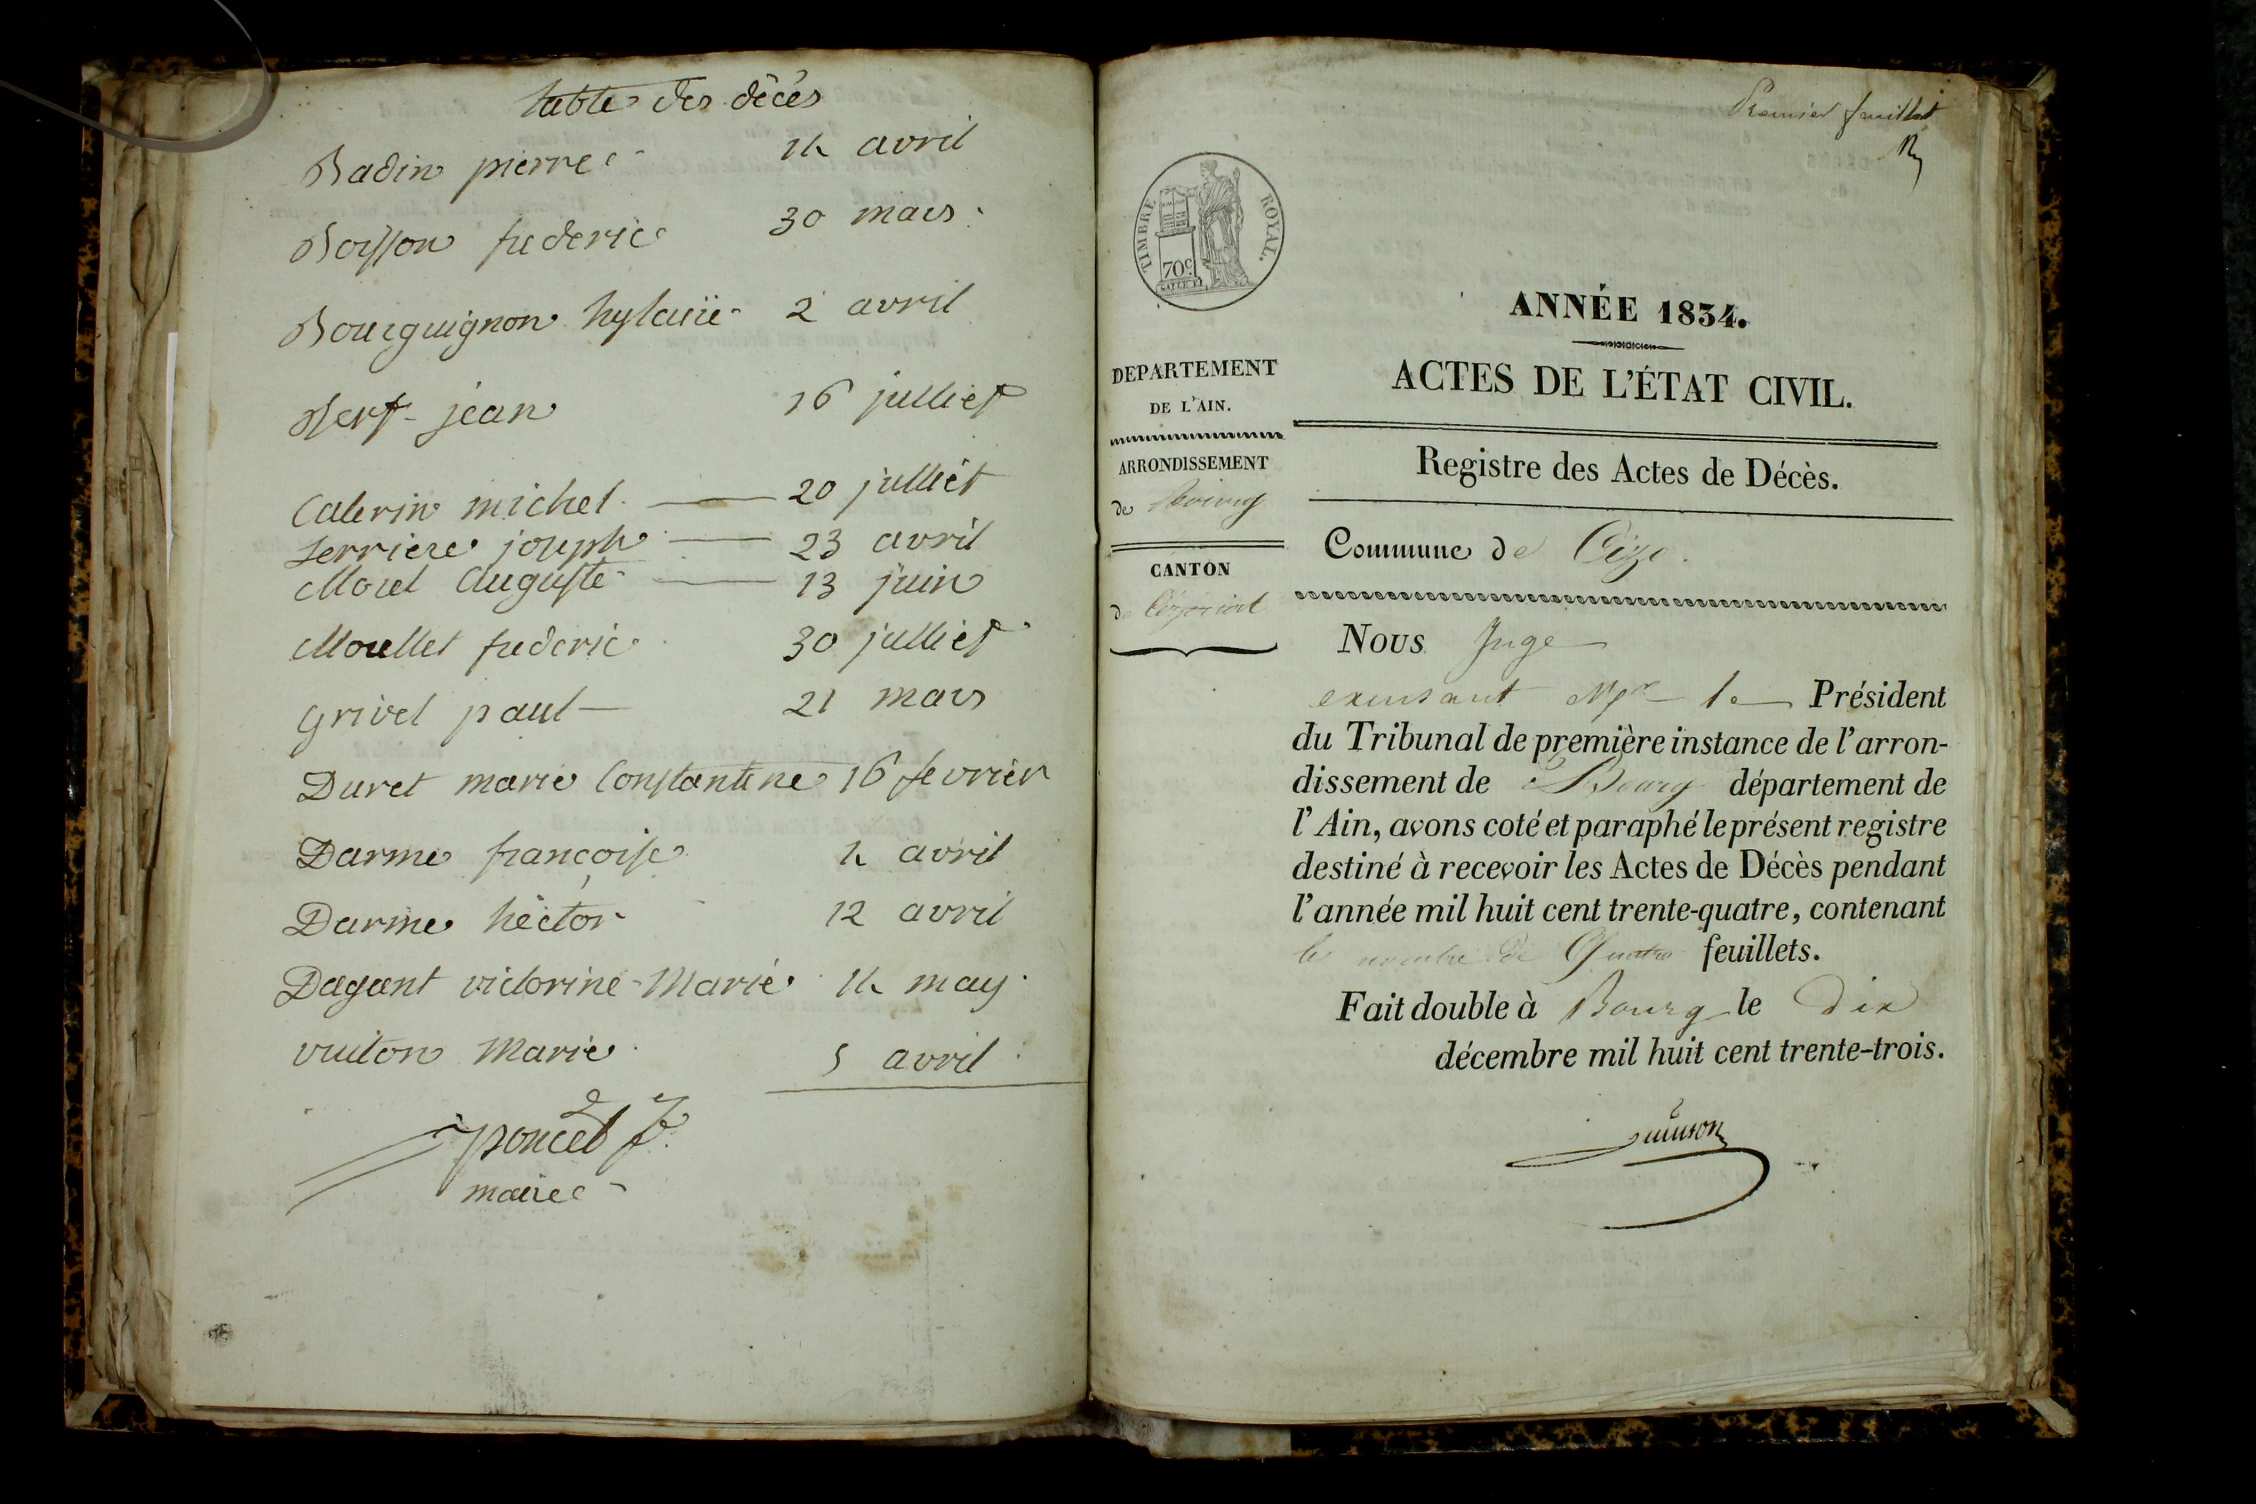 table des décès
Badin pierre 14 avril
Boisson frederic 30 mars
Bourguignon hylaire 2 avril
Berf jéan 16 julliet
Caterin michel 20 julliét
ferriere joseph 23 avril
Morel Auguste 13 juin
Morellet frederic 30 julliet
Grivel paul 21 mars
Duret marie Constantine 16 fevrier
Darme françoise 4 avril
Darme héctor 12 avril
Dagant victorine Marie 14 may
vuiton Marie 5 avril
poncet f.
maire
Premier feuillet
TIMBRE ROYAL.
70c
ANNÉE 1834.
ACTES DE L'ÉTAT CIVIL.
Registre des Actes de Décès.
DEPARTEMENT
DE L'AIN.
ARRONDISSEMENT
de Bourg
CANTON
de Ceyzeriat
Commune de Cize.
Nous Juge
Mr le Président
du Tribunal de première instance de l'arron-
dissement de Bourg département de
l'Ain, avons coté et paraphé le présent registre
destiné à recevoir les Actes de Décès pendant
l'année mil huit cent trente-quatre, contenant
le nombre de Quatre feuillets.
Fait double à Bourg le dix
décembre mil huit cent trente-trois.